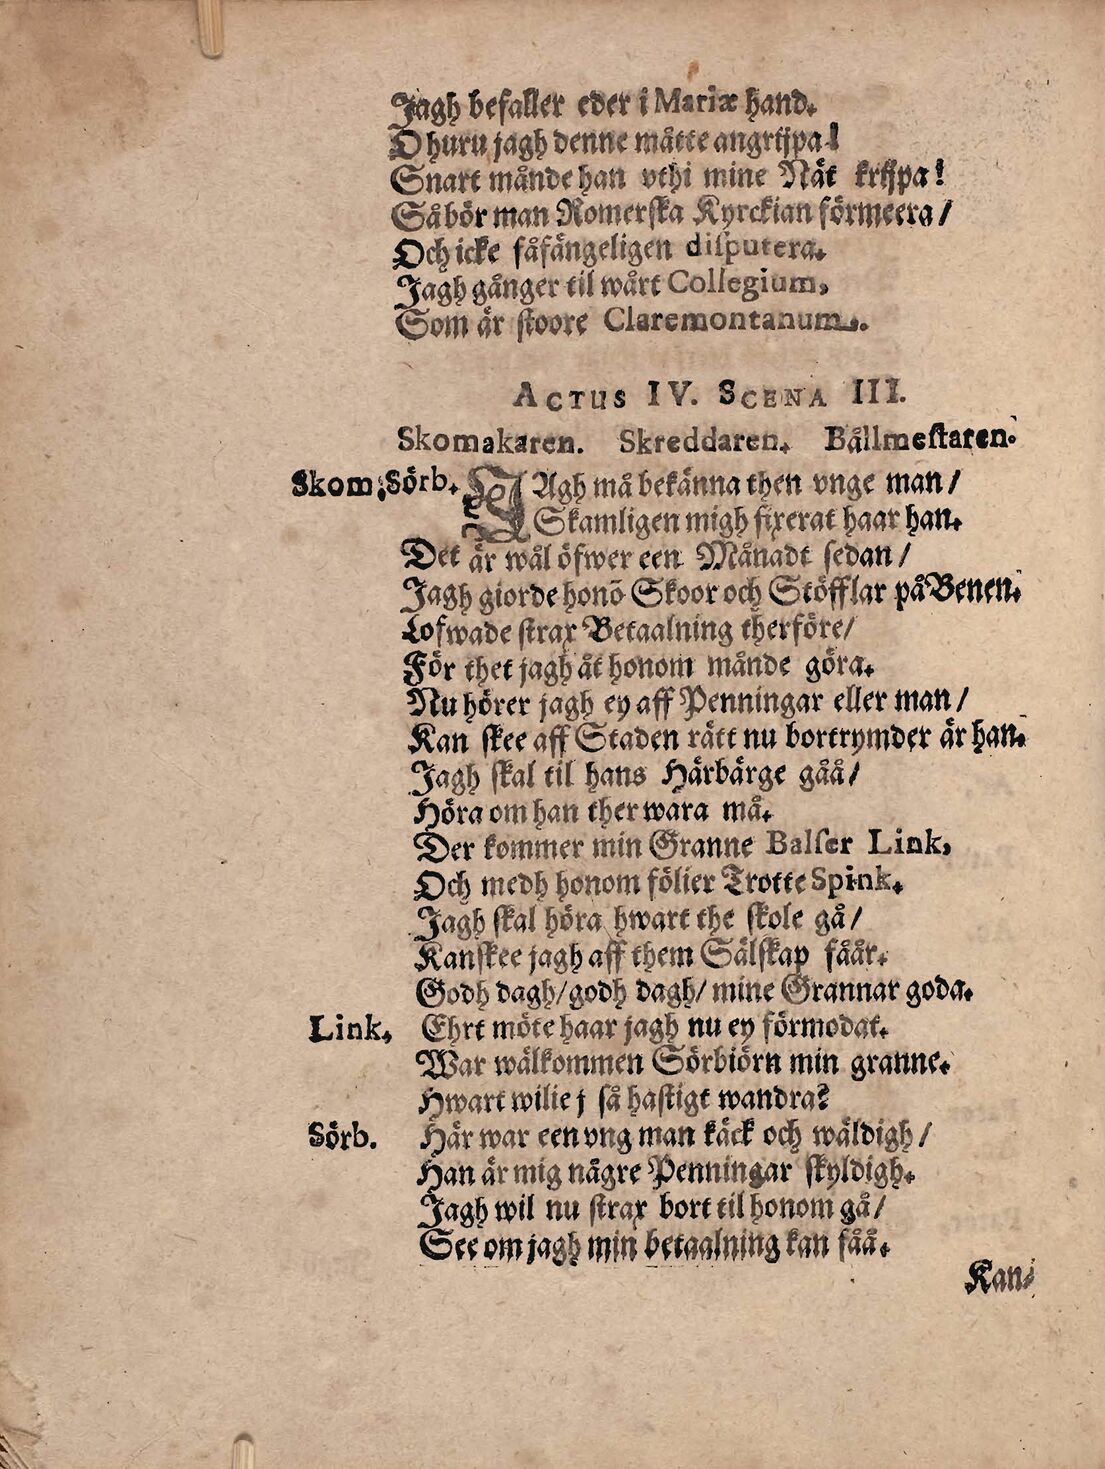 Jagh befaller eder i Mariæ hand.
O huru jagh denne måtte angrijpa!
Snart månde han vthi mine Nät krijpa!
Så bör man Romerska Kyrckian förmeera/
Och icke fåfängeligen disputera.
Jagh gånger til wårt Collegium,
Som är stoore Claremontanum.
ACTUS IV. SCENA III.
Skomakaren. Skreddaren. Bållmestaren.
Skom. Sörb. JAgh må bekänna then vnge man/
Skamligen migh fixerat haar han.
Det är wäl öfwer een Månadt sedan/
Jagh giorde honõ Skoor och Stöfflar på Benen.
Lofwade strax Betaalning therföre/
För thet jagh åt honom månde göra.
Nu hörer jagh ey aff Penningar eller man/
Kan skee aff Staden rätt nu bortrymder är han.
Jagh skal til hans Härbärge gåå/
Höra om han ther wara må.
Der kommer min Granne Balser Link,
Och medh honom fölier Trotte Spink.
Jagh skal höra hwart the skole gå/
Kanskee jagh aff them Sälskap fåår.
Godh dagh/ godh dagh/ mine Grannar goda.
Link. Ehrt möte haar jagh nu ey förmodat.
War wälkommen Sörbiörn min granne.
Hwart wilie j så hastigt wandra?
Sörb. Här war een vng man käck och wäldigh/
Han är mig någre Penningar skyldigh.
Jagh wil nu strax bort til honom gå/
See om jagh min betaalning kan fåå.
Kan-